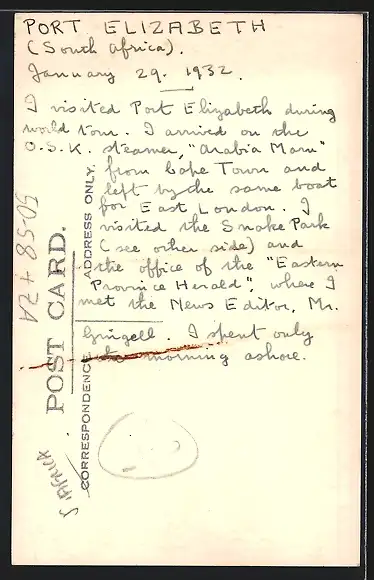 PORT ELIZABETH
(South Africa).
January 29. 1932.
I visited Port Elizabeth during
world tour. I arrived on the
O.S.K. steamer, "Arabia Maru"
from Cape Town and
left by the same boat
for East London. I
visited the Snake Park
(see other side) and
the office of the "Eastern
Province Herald", where I
met the News Editor, Mr.
Gingell. I spent only
the morning ashore.
POST CARD.
CORRESPONDENCE
ADDRESS ONLY.
S. Africa